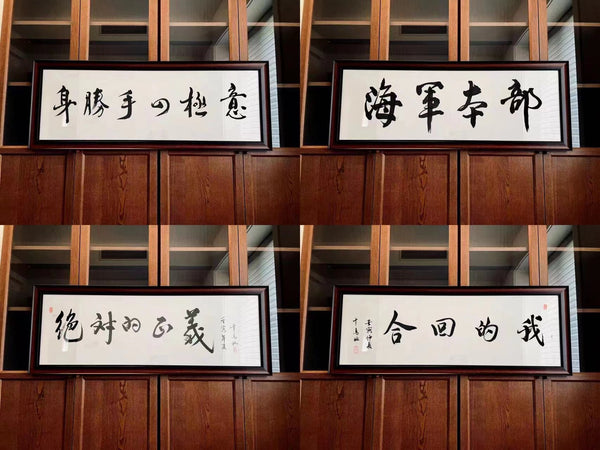 身勝手の極意
海軍本部
絶対的正義
我的回合
壬寅仲夏